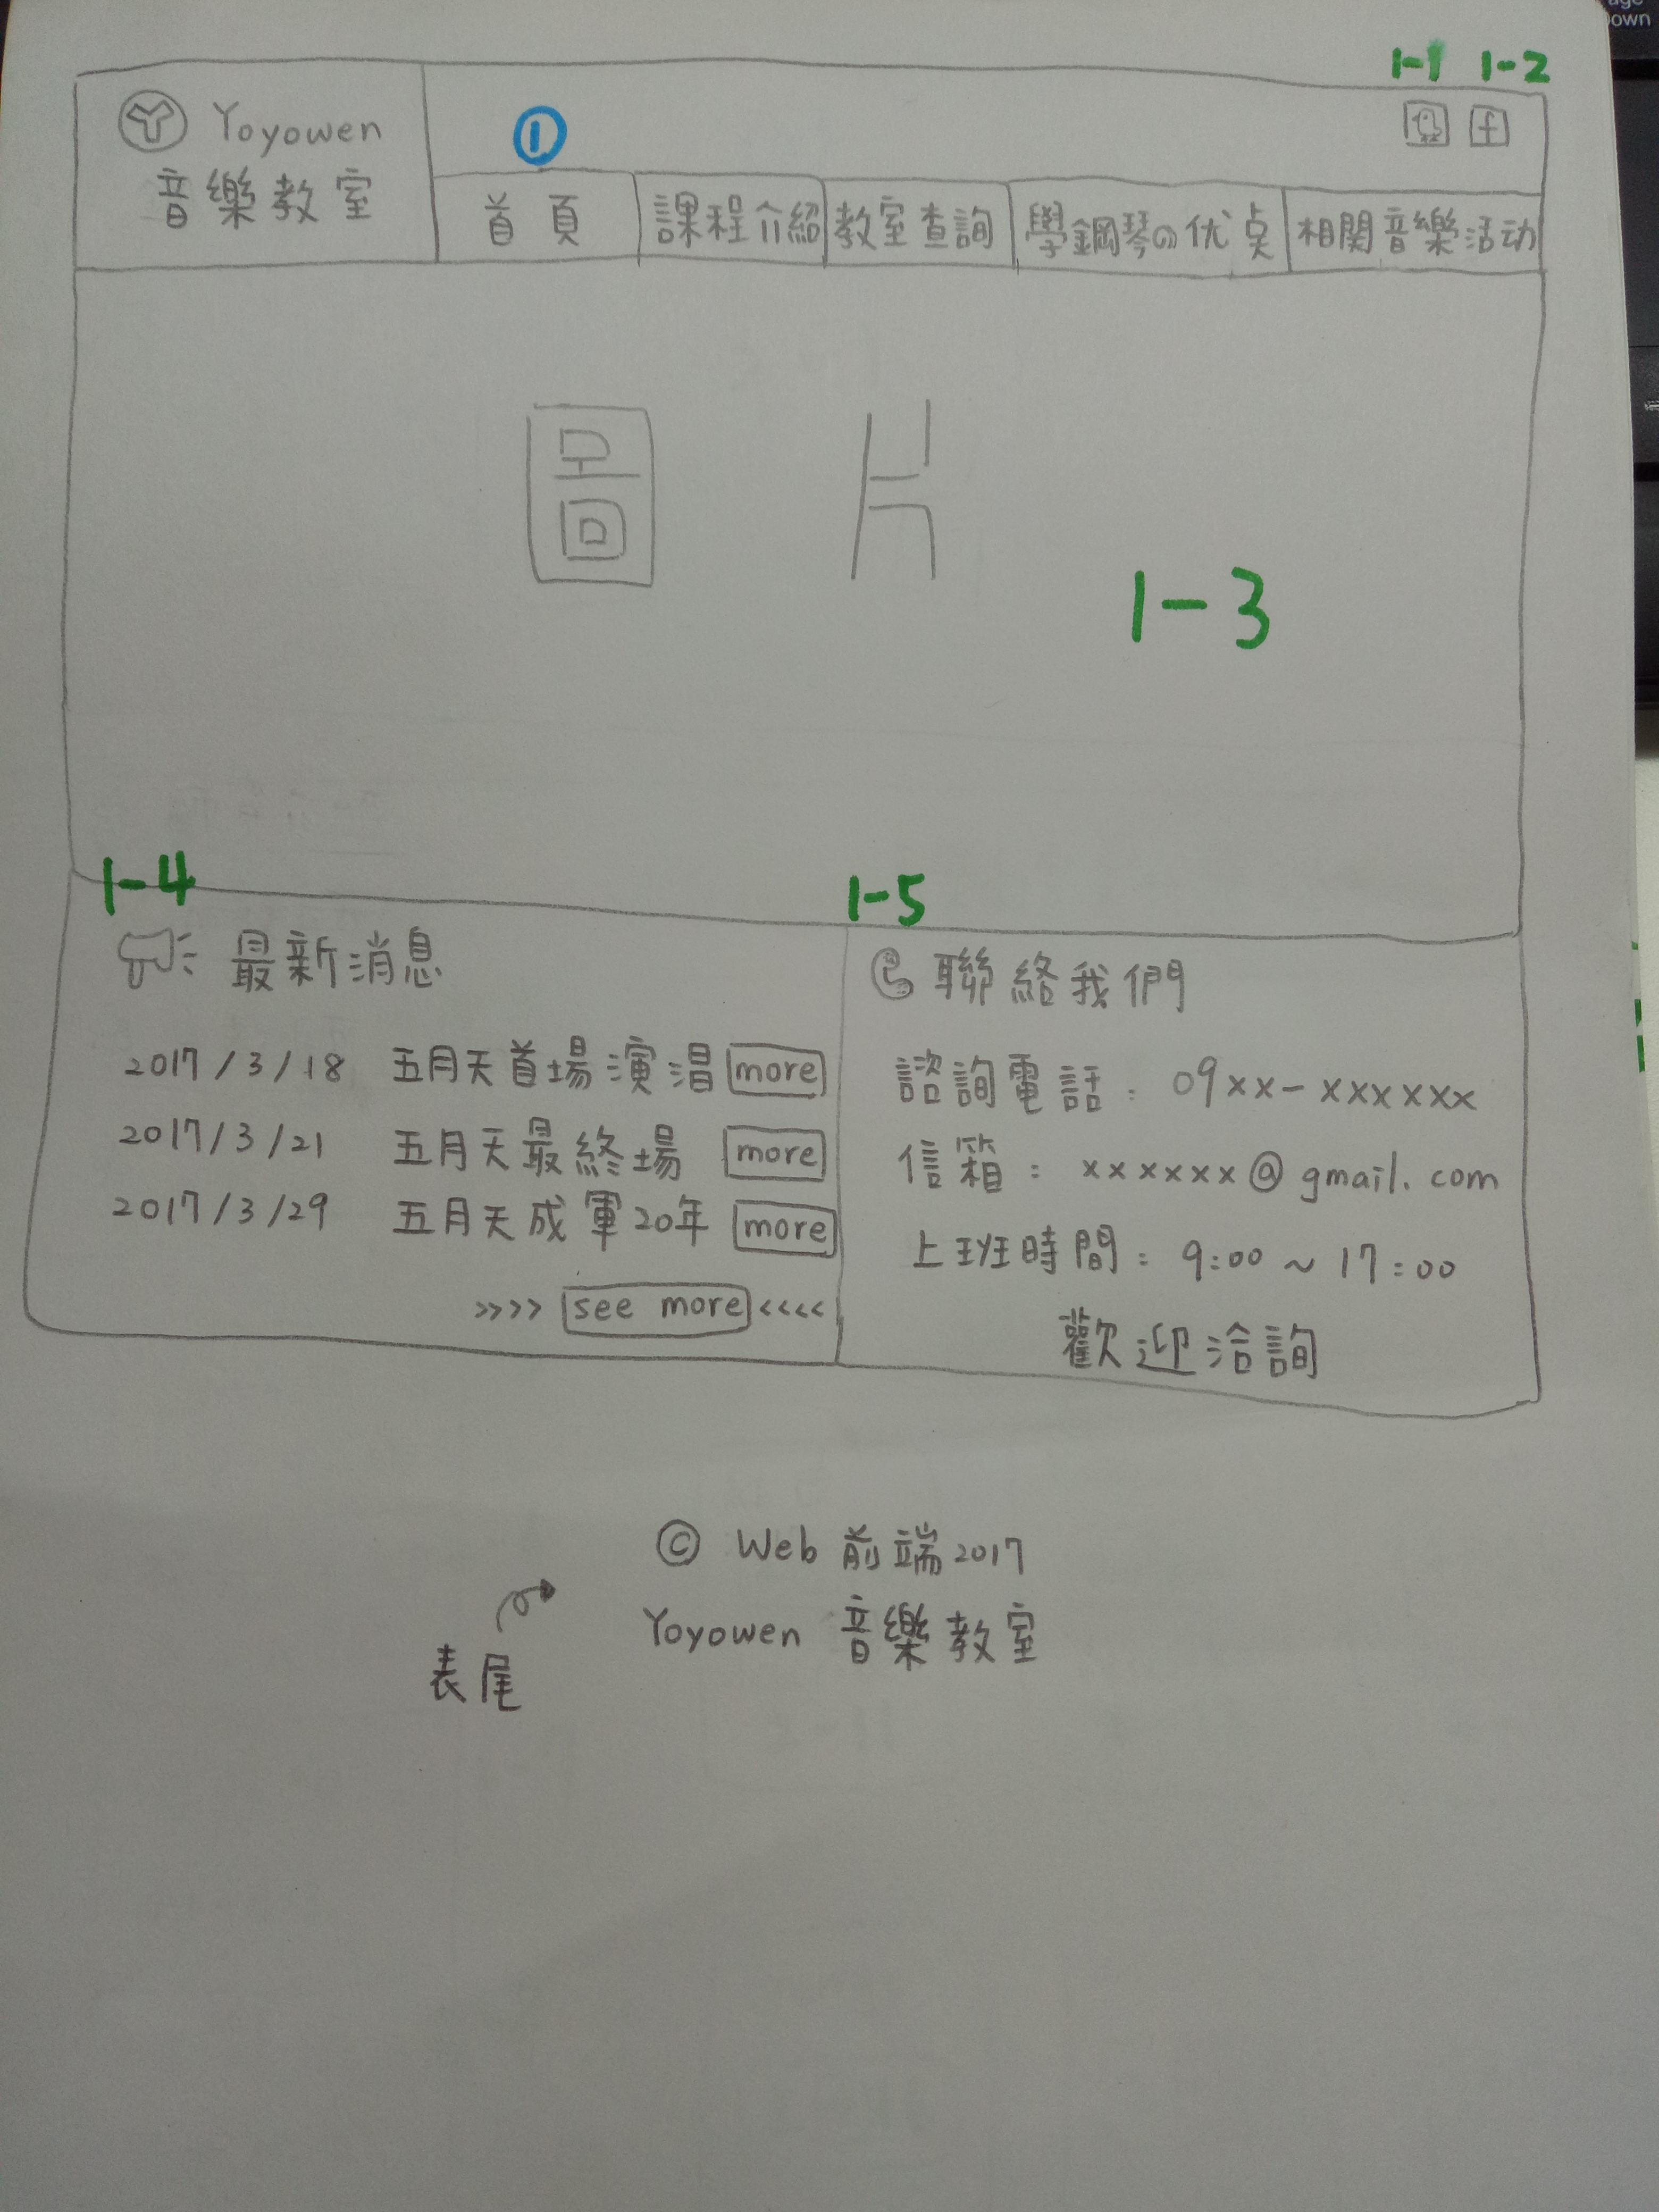 age
own
1-1 1-2
Yoyowen
音樂教室
1
f
首頁 課程介紹 教室查詢 學鋼琴の优点 相関音樂活动
圖片
1-3
1-4
1-5
最新消息
2017/3/18 五月天首場演唱 more
2017/3/21 五月天最終場 more
2017/3/29 五月天成軍20年 more
>>>> see more <<<<
聯絡我們
諮詢電話：09xx-xxxxxx
信箱：xxxxxx@gmail.com
上班時間：9:00~17:00
歡迎洽詢
© Web 前端2017
Yoyowen 音樂教室
表尾